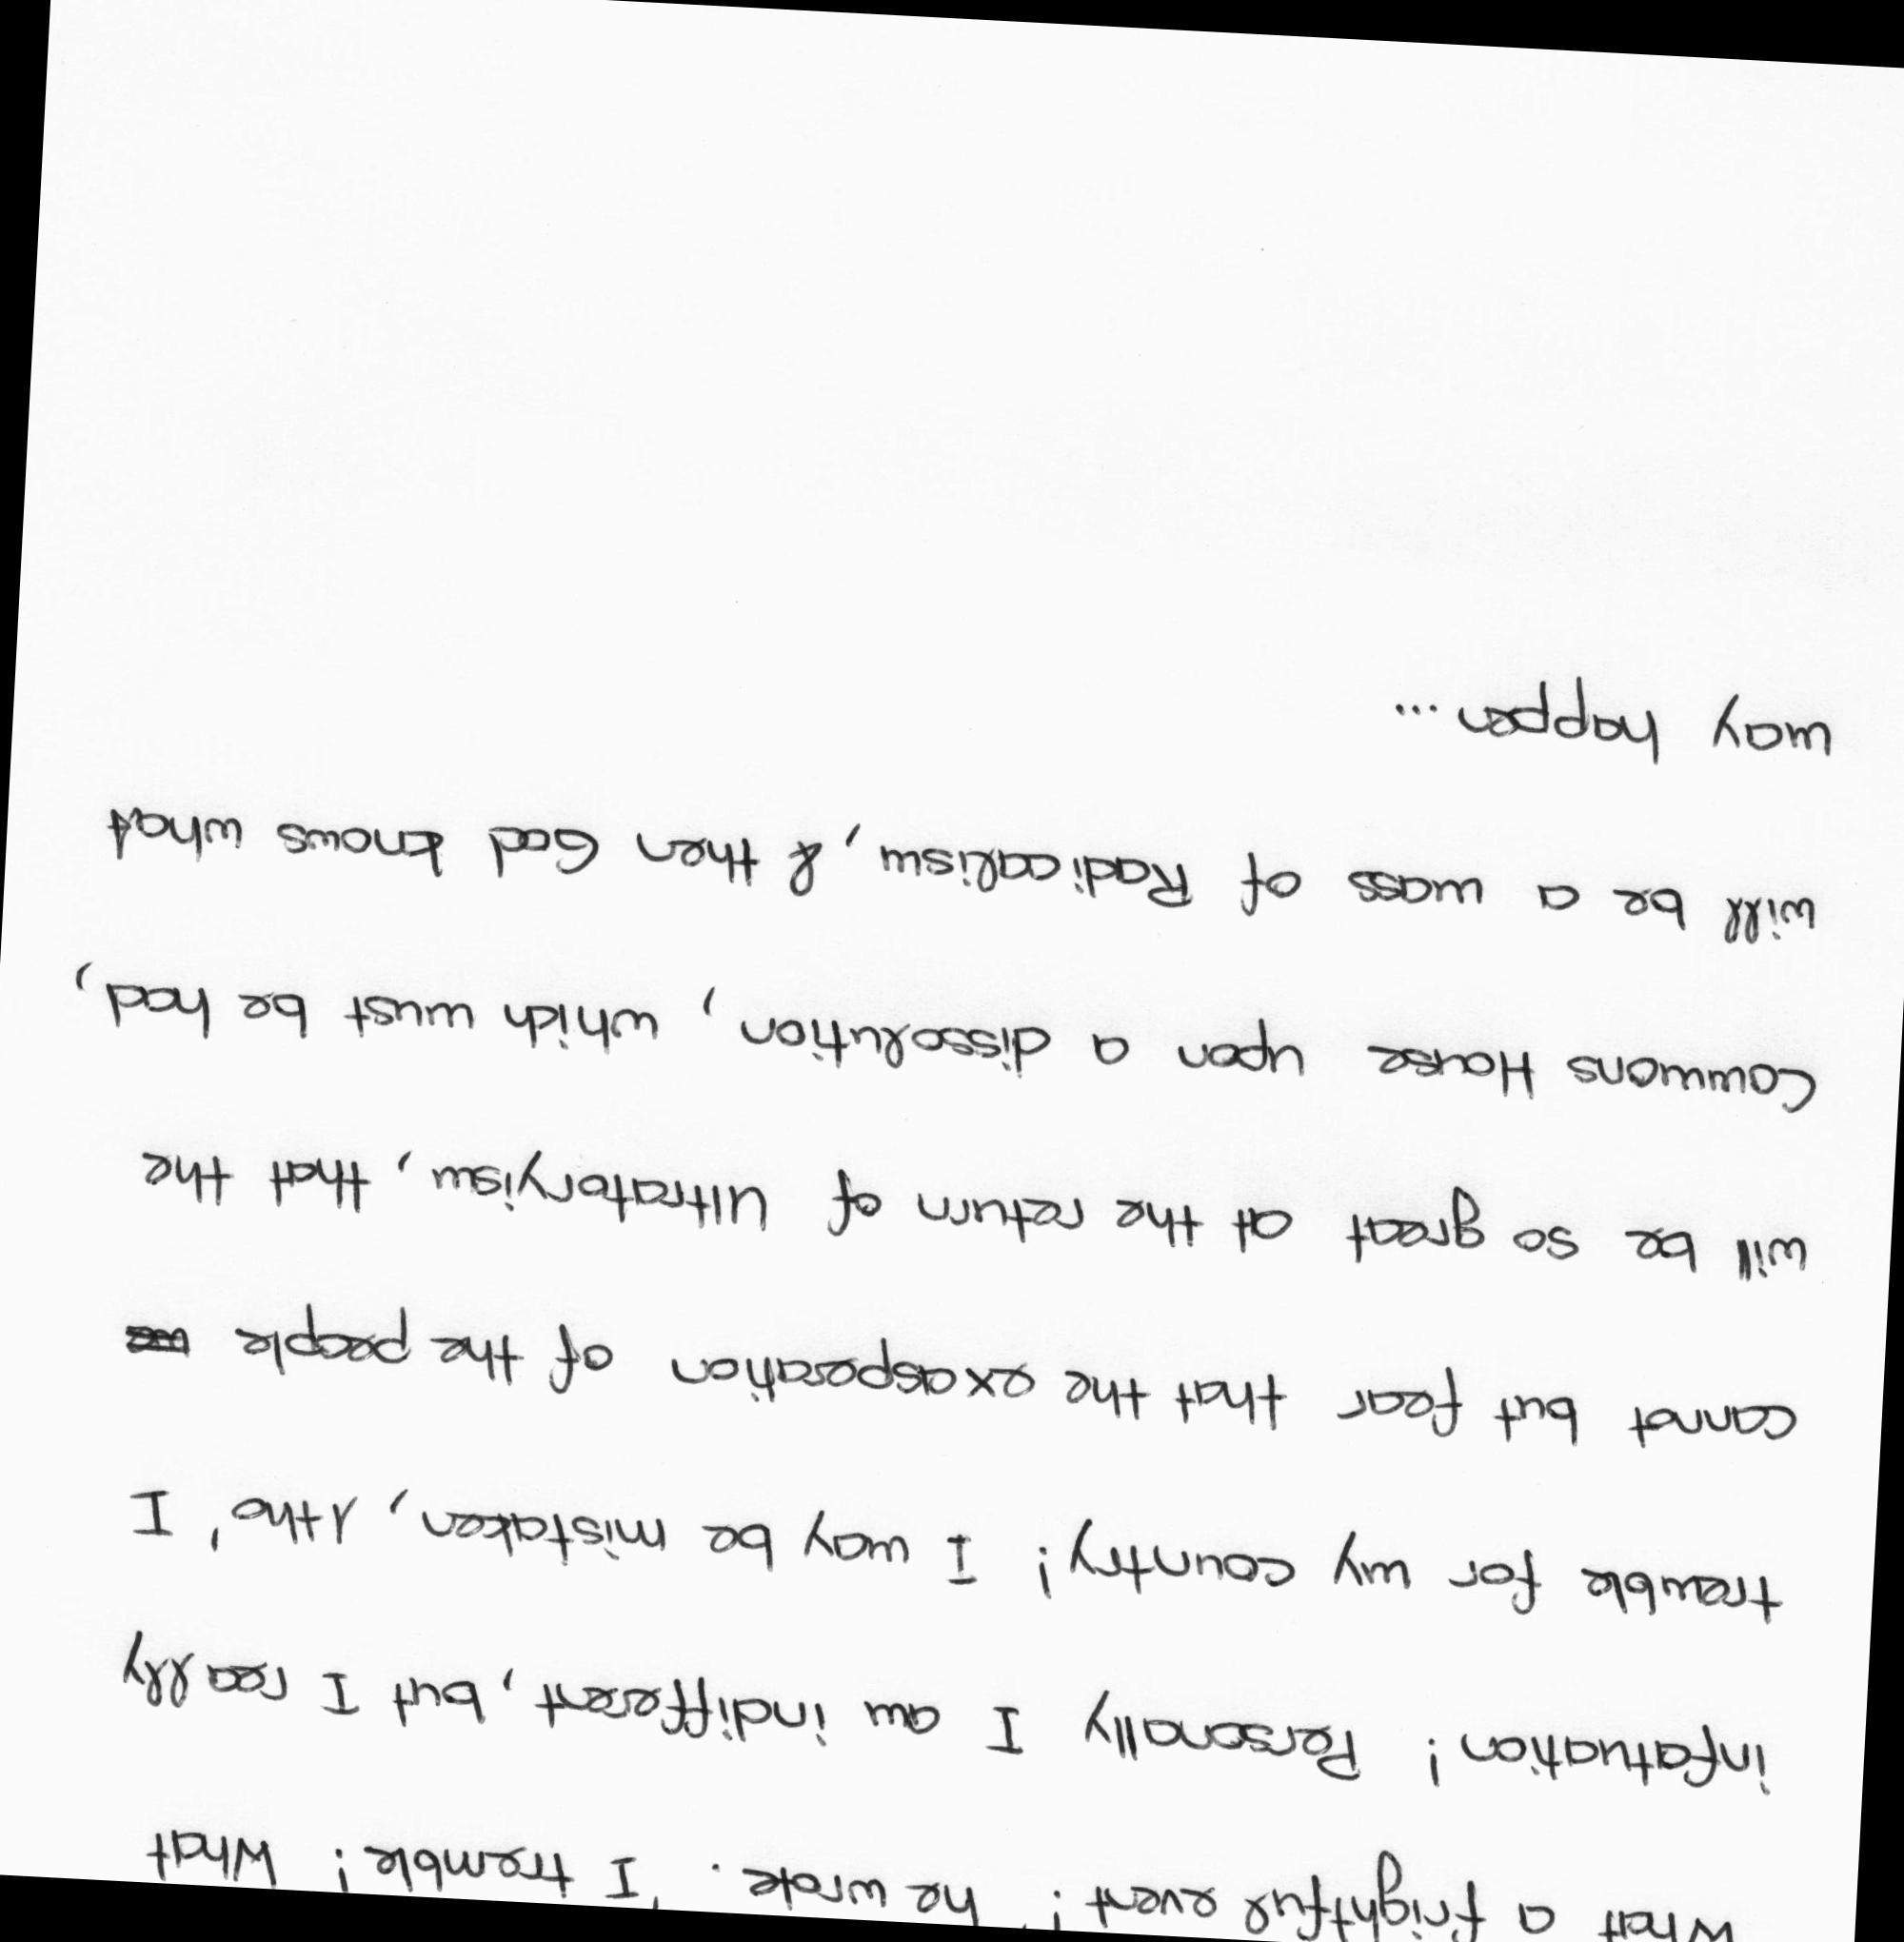 What a frightful event!' he wrote. 'I tremble! What
infatuation! Personally I am indifferent, but I really
tremble for my country! I may be mistaken, tho', I
cannot but fear that the exasperation of the people
will be so great at the return of Ultratoryism, that the
Commons House upon a dissolution, which must be had,
will be a mass of Radicalism, & then God knows what
may happen...